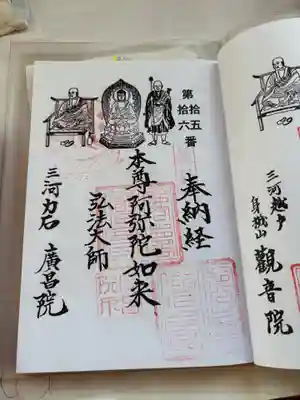 第拾五
拾六番
奉納経
本尊阿弥陀如来
弘法大師
三河力石 廣昌院
三河越戸
観音院